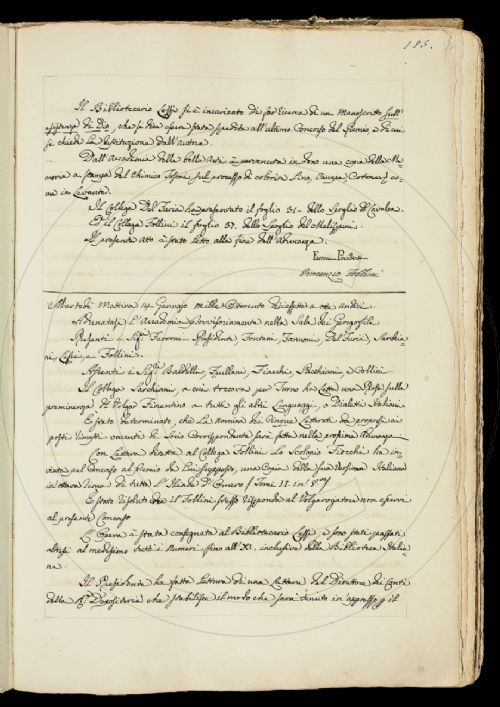 185.
Il Bibliotecario Zeffi si è incaricato di far ricerca di un Manoscritto sull'
esistenza di Dio, che si dice essere stato spedito all'ultimo Concorso del Premio, e di cui
si chiede la restituzione dall'autore.
Dall'Accademia delle belle Arti è pervenuta in dono una copia della Me-
moria a stampa del Chimico Tesori sul processo di colorir Lino, Canapa, Cotone, co-
me in Levante.
Il Collega Del Furia ha presentato il foglio 31 dello Spoglio del Cavalca.
Ed il Collega Follini il foglio 37. dello Spoglio del Malispini.
Il presente Atto è stato letto alla fine dell'Adunanza.
Ferroni Presidente
Vincenzio Follini
Martedì Mattina 14 Gennajo mille Ottocento diciassette a ore undici.
Adunatasi l'Accademia provvisoriamente nella Sala dei Georgofili
Presenti i Sig.ri Ferroni Presidente, Fontani, Zannoni, Del Furia, Sarchia-
ni, Zeffi, e Follini.
Assenti i Sig.ri Baldelli, Fiacchi, e Collini
Il Collega Sarchiani, a cui toccava per Turno ha letto una Prosa sulla
preminenza del Volgar Fiorentino a tutti gli altri Linguaggi, o Dialetti Italiani.
È stato determinato, che la nomina dei Cinque Letterati da proporsi ai
posti rimasti vacanti di Socio Corrispondente sarà fatta nella prossima Adunanza.
Con Lettera diretta al Collega Follini Lo Scolopio Fiocchi ha in-
viata pel Concorso al premio da Lui supposto, una Copia della sua Versione Italiana
in ottava rima di tutta l'Iliade d'Omero / Tomi II. in 8.vo/
È stato risoluto che il Follini stesso risponda al Volgarizzatore non esservi
al presente Concorso
L'Opera è stata consegnata al Bibliotecario Zeffi, e sono stati passati
altresì al medesimo tutti i Numeri fino all'XI. inclusive della Biblioteca Italia-
na.
Il Presidente ha fatto lettura di una lettera del Direttore dei Conti
della R.a Depositeria che stabilisce il modo che sarà tenuto in appresso p il